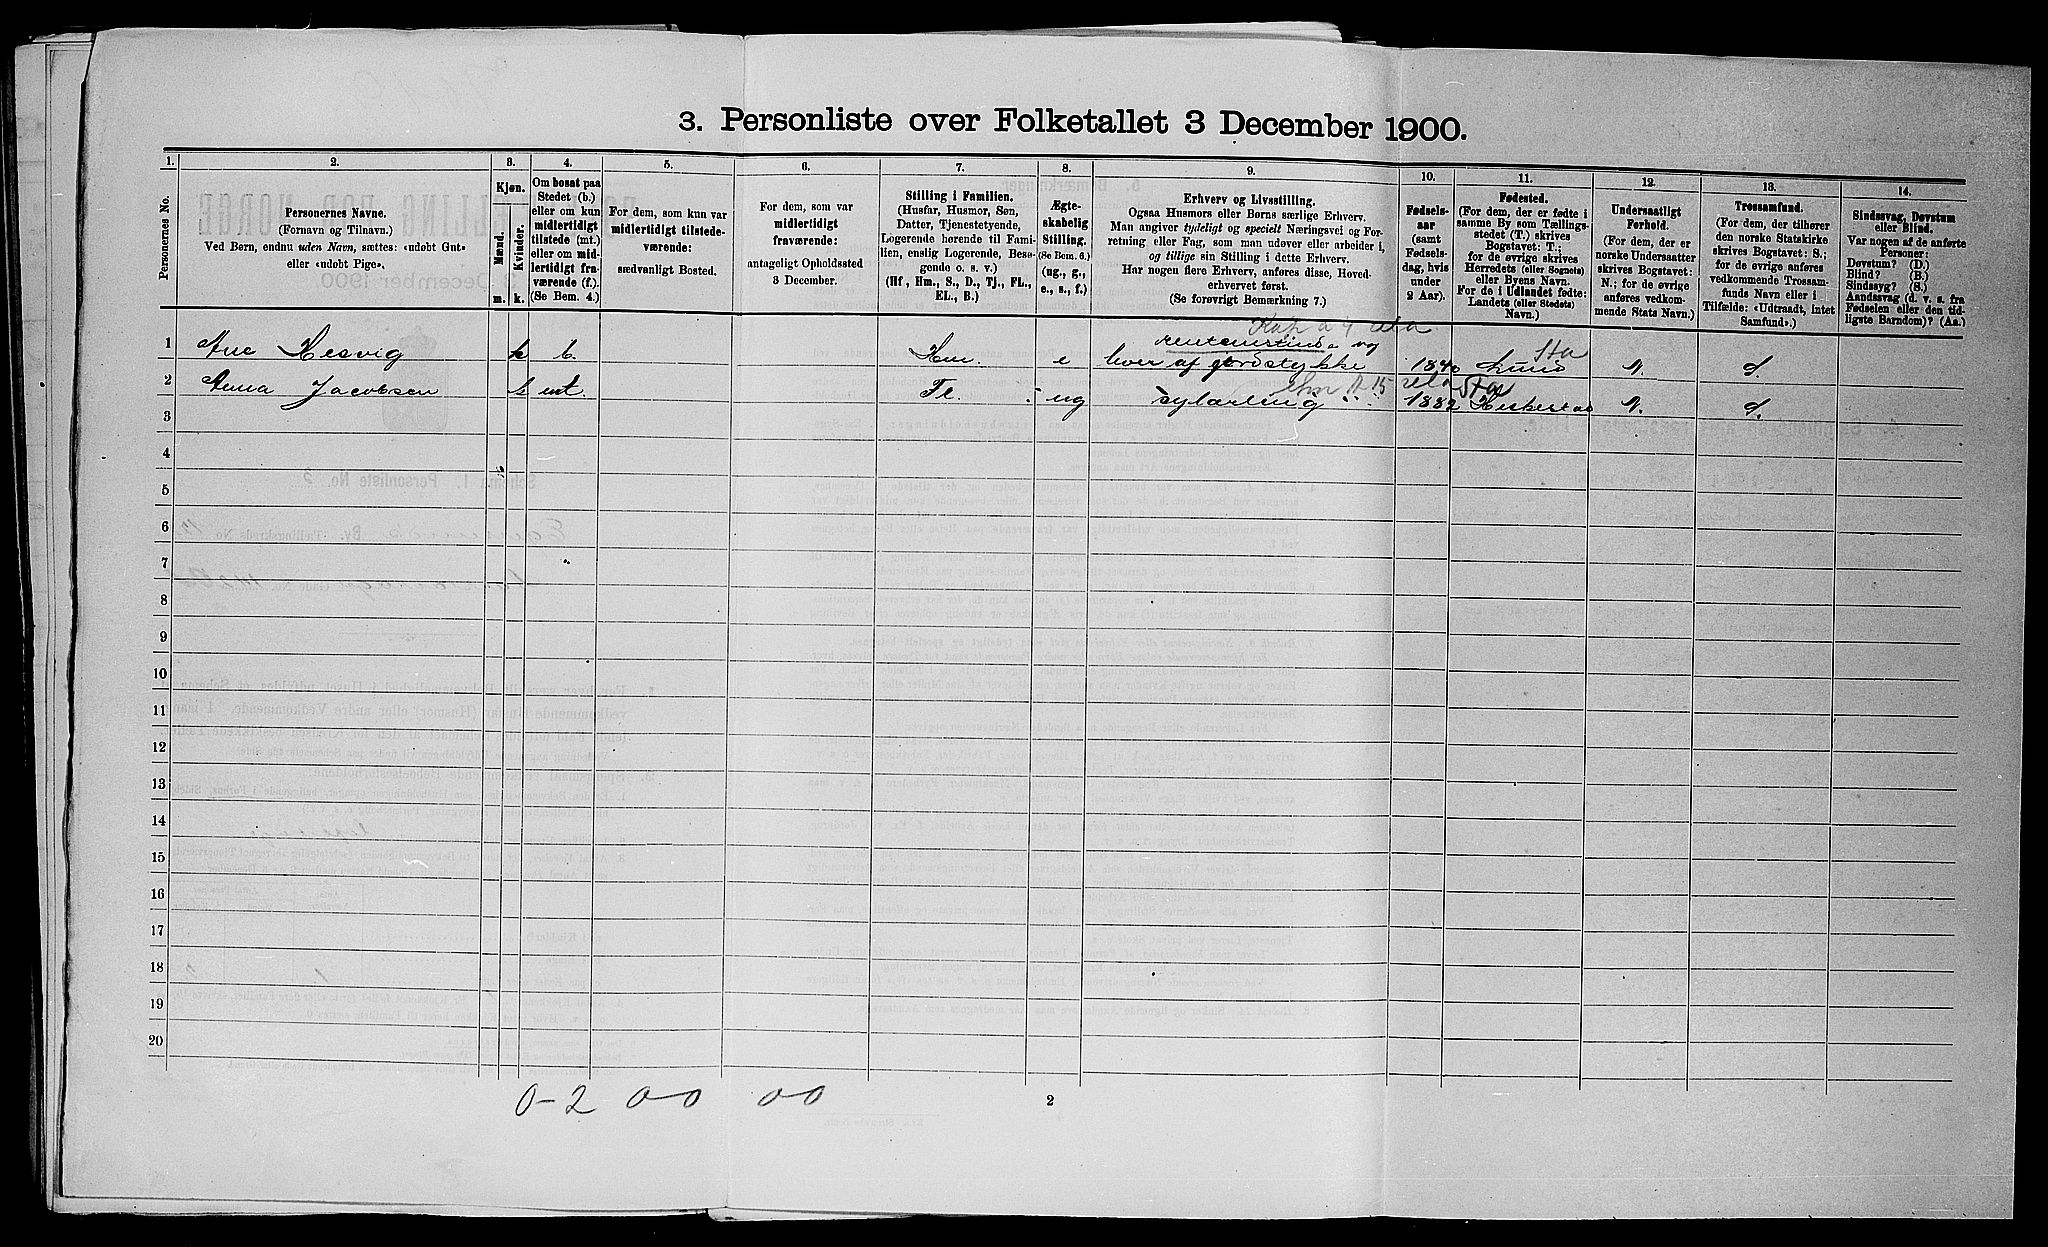 3. Personliste over Folketallet 3 December 1900.
1. 2. 3. 4. 5. 6. 7. 8. 9. 10. 11. 12. 13. 14.
Personernes No.
Personernes Navne.
(Fornavn og Tilnavn.)
Ved Børn, endnu uden Navn, sættes: «udøbt Gut»
eller «udøbt Pige».
Kjøn.
Mænd. Kvinder.
m. k.
Om bosat paa
Stedet (b.)
eller om kun
midlertidigt
tilstede (mt.)
eller om mid-
lertidigt fra-
værende (f.)
(Se Bem. 4.)
For dem, som kun var
midlertidigt tilstede-
værende:
sædvanligt Bosted.
For dem, som var
midlertidigt
fraværende:
antageligt Opholdssted
3 December.
Stilling i Familien.
(Husfar, Husmor, Søn,
Datter, Tjenestetyende,
Logerende hørende til Fami-
lien, enslig Logerende, Besø-
gende o. s. v.)
(Hf, Hm., S., D., Tj., FL.,
EL., B.)
Ægte-
skabelig
Stilling.
(Se Bem. 6.)
(ug., g.,
e., s., f.)
Erhverv og Livsstilling.
Ogsaa Husmors eller Børns særlige Erhverv.
Man angiver tydeligt og specielt Næringsvei og For-
retning eller Fag, som man udøver eller arbeider i,
og tillige sin Stilling i dette Erhverv.
Har nogen flere Erhverv, anføres disse, Hoved-
erhvervet først.
(Se forøvrigt Bemærkning 7.)
Fødsels-
aar
(samt
Fødsels-
dag, hvis
under
2 Aar).
Fødested.
(For dem, der er fødte i
samme By som Tællings-
stedet (T.) skrives
Bogstavet: T.;
for de øvrige skrives
Herredets (eller Sognets)
eller Byens Navn.
For de i Udlandet fødte:
Landets (eller Stedets)
Navn.)
Undersaatligt
Forhold.
(For dem, der er
norske Undersaatter
skrives Bogstavet:
N.; for de øvrige
anføres vedkom-
mende Stats Navn.)
Trossamfund.
(For dem, der tilhører
den norske Statskirke
skrives Bogstavet: S.;
for de øvrige anføres
vedkommende Trossam-
funds Navn eller i
Tilfælde: «Udtraadt, intet
Samfund».)
Sindssvag, Døvstum
eller Blind.
Var nogen af de anførte
Personer:
Døvstum? (D.)
Blind? (B.)
Sindssyg? (S.)
Aandssvag (d. v. s. fra
Fødselen eller den tid-
ligste Barndom)? (Aa.)
1 Ane Hesvig k b. Hm. e lever af jordstykke 1840 Lund N. S.
Sta
2 Anna Jacobsen k mt. Fl. ug sylærling 1882 Heskestad N. S.
Sta
3
4
5
6
7
8
9
10
11
12
13
14
15
16
17
18
19
20
0-2 00 00
2